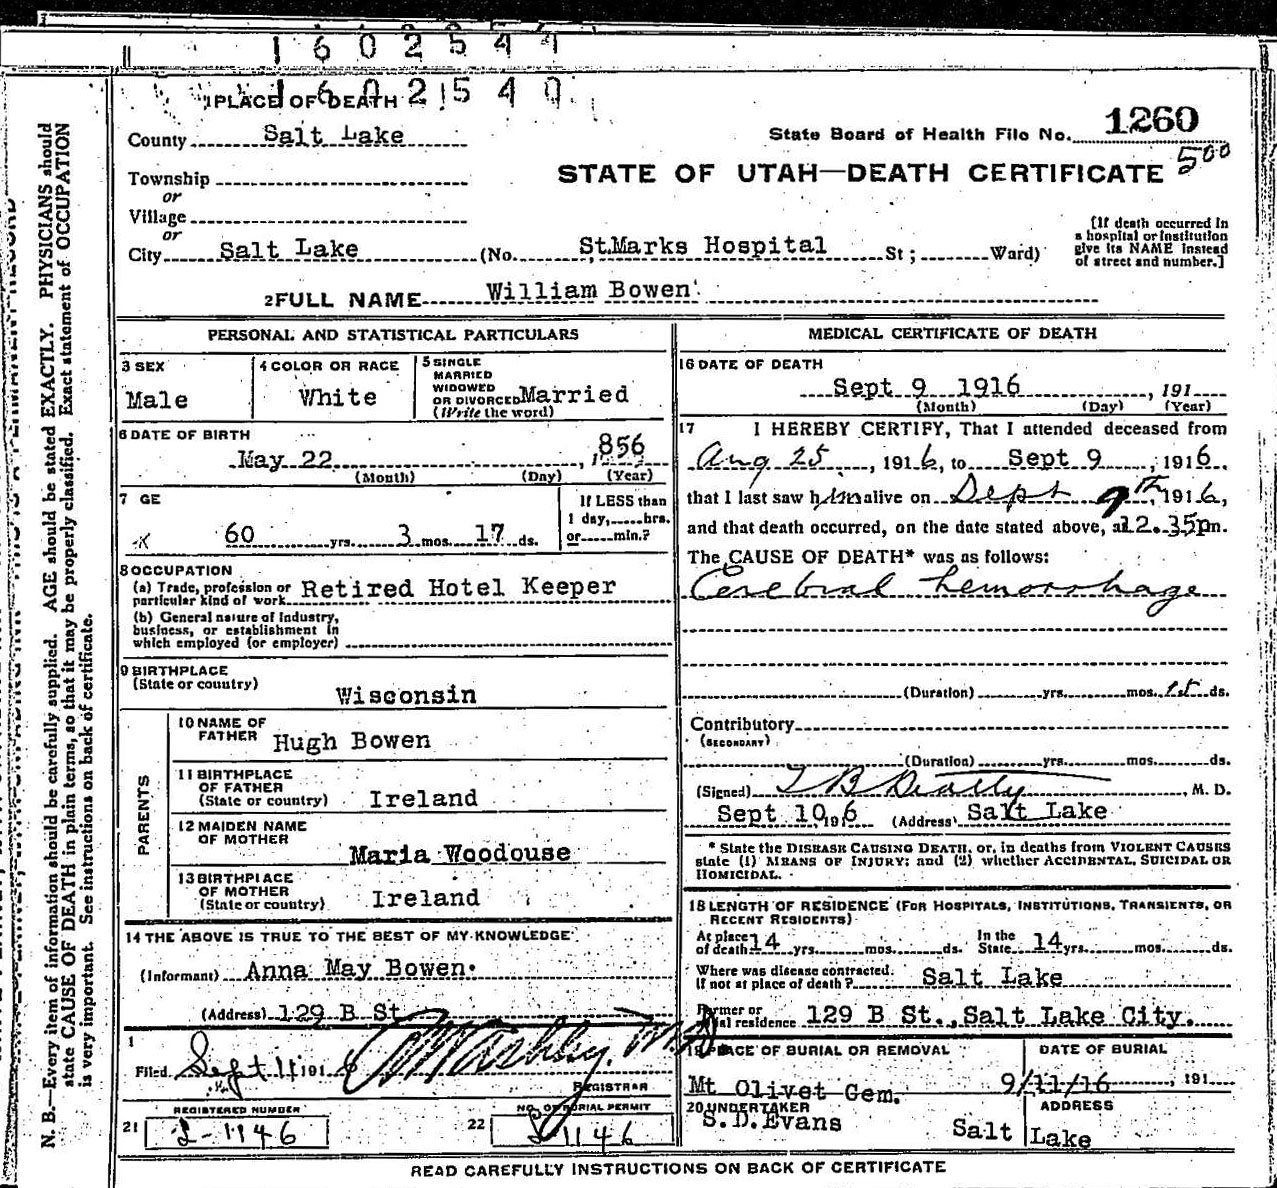 1602544
1602540
1 PLACE OF DEATH
County Salt Lake
State Board of Health File No. 1260
500
Township
or
Village
or
City Salt Lake (No. St.Marks Hospital St; Ward)
STATE OF UTAH—DEATH CERTIFICATE
[If death occurred in
a hospital or institution
give its NAME instead
of street and number.]
2 FULL NAME William Bowen
PERSONAL AND STATISTICAL PARTICULARS
3 SEX
Male
4 COLOR OR RACE
White
5 SINGLE
MARRIED
WIDOWED
OR DIVORCED Married
(Write the word)
6 DATE OF BIRTH
May 22, 1856
(Month) (Day) (Year)
7 GE
60 yrs. 3 mos. 17 ds.
If LESS than
1 day, hrs.
or min.?
8 OCCUPATION
(a) Trade, profession or
particular kind of work Retired Hotel Keeper
(b) General nature of Industry,
business, or establishment in
which employed (or employer)
9 BIRTHPLACE
(State or country)
Wisconsin
PARENTS
10 NAME OF
FATHER Hugh Bowen
11 BIRTHPLACE
OF FATHER
(State or country) Ireland
12 MAIDEN NAME
OF MOTHER
Maria Woodouse
13 BIRTHPLACE
OF MOTHER
(State or country) Ireland
14 THE ABOVE IS TRUE TO THE BEST OF MY KNOWLEDGE
(Informant) Anna May Bowen.
(Address) 129 B St
Filed Sept 11 1916
REGISTRAR
REGISTERED NUMBER
21 2-1146
NO. OF BURIAL PERMIT
22 1146
MEDICAL CERTIFICATE OF DEATH
16 DATE OF DEATH
Sept 9 1916, 191
(Month) (Day) (Year)
17 I HEREBY CERTIFY, That I attended deceased from
Aug 25, 1916, to Sept 9, 1916,
that I last saw him alive on Sept 9th, 1916,
and that death occurred, on the date stated above, at 12.35pm.
The CAUSE OF DEATH* was as follows:
Cerebral hemorrhage
(Duration) yrs. mos. 15 ds.
Contributory
(SECONDARY)
(Duration) yrs. mos. ds.
(Signed) T B Beatty, M. D.
Sept 10, 1916 (Address) Salt Lake
* State the DISEASE CAUSING DEATH, or, in deaths from VIOLENT CAUSES
state (1) MEANS OF INJURY; and (2) whether ACCIDENTAL, SUICIDAL OR
HOMICIDAL.
18 LENGTH OF RESIDENCE (FOR HOSPITALS, INSTITUTIONS, TRANSIENTS, OR
RECENT RESIDENTS)
At place
of death 14 yrs. mos. ds. In the
State 14 yrs. mos. ds.
Where was disease contracted.
If not at place of death? Salt Lake
Former or
usual residence 129 B St., Salt Lake City.
19 PLACE OF BURIAL OR REMOVAL
Mt Olivet Cem.
DATE OF BURIAL
9/11/16, 191
20 UNDERTAKER
S.D.Evans
ADDRESS
Salt Lake
READ CAREFULLY INSTRUCTIONS ON BACK OF CERTIFICATE
N. B.—Every item of information should be carefully supplied. AGE should be stated EXACTLY. PHYSICIANS should
state CAUSE OF DEATH in plain terms, so that it may be properly classified. Exact statement of OCCUPATION
is very important. See instructions on back of certificate.